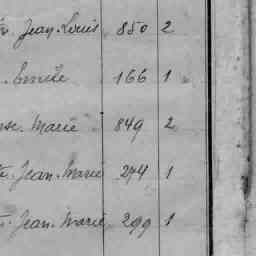 Jean-Louis 850 2
Emile 166 1
Marie 849 2
Jean-Marie 274 1
Jean-Marie 299 1